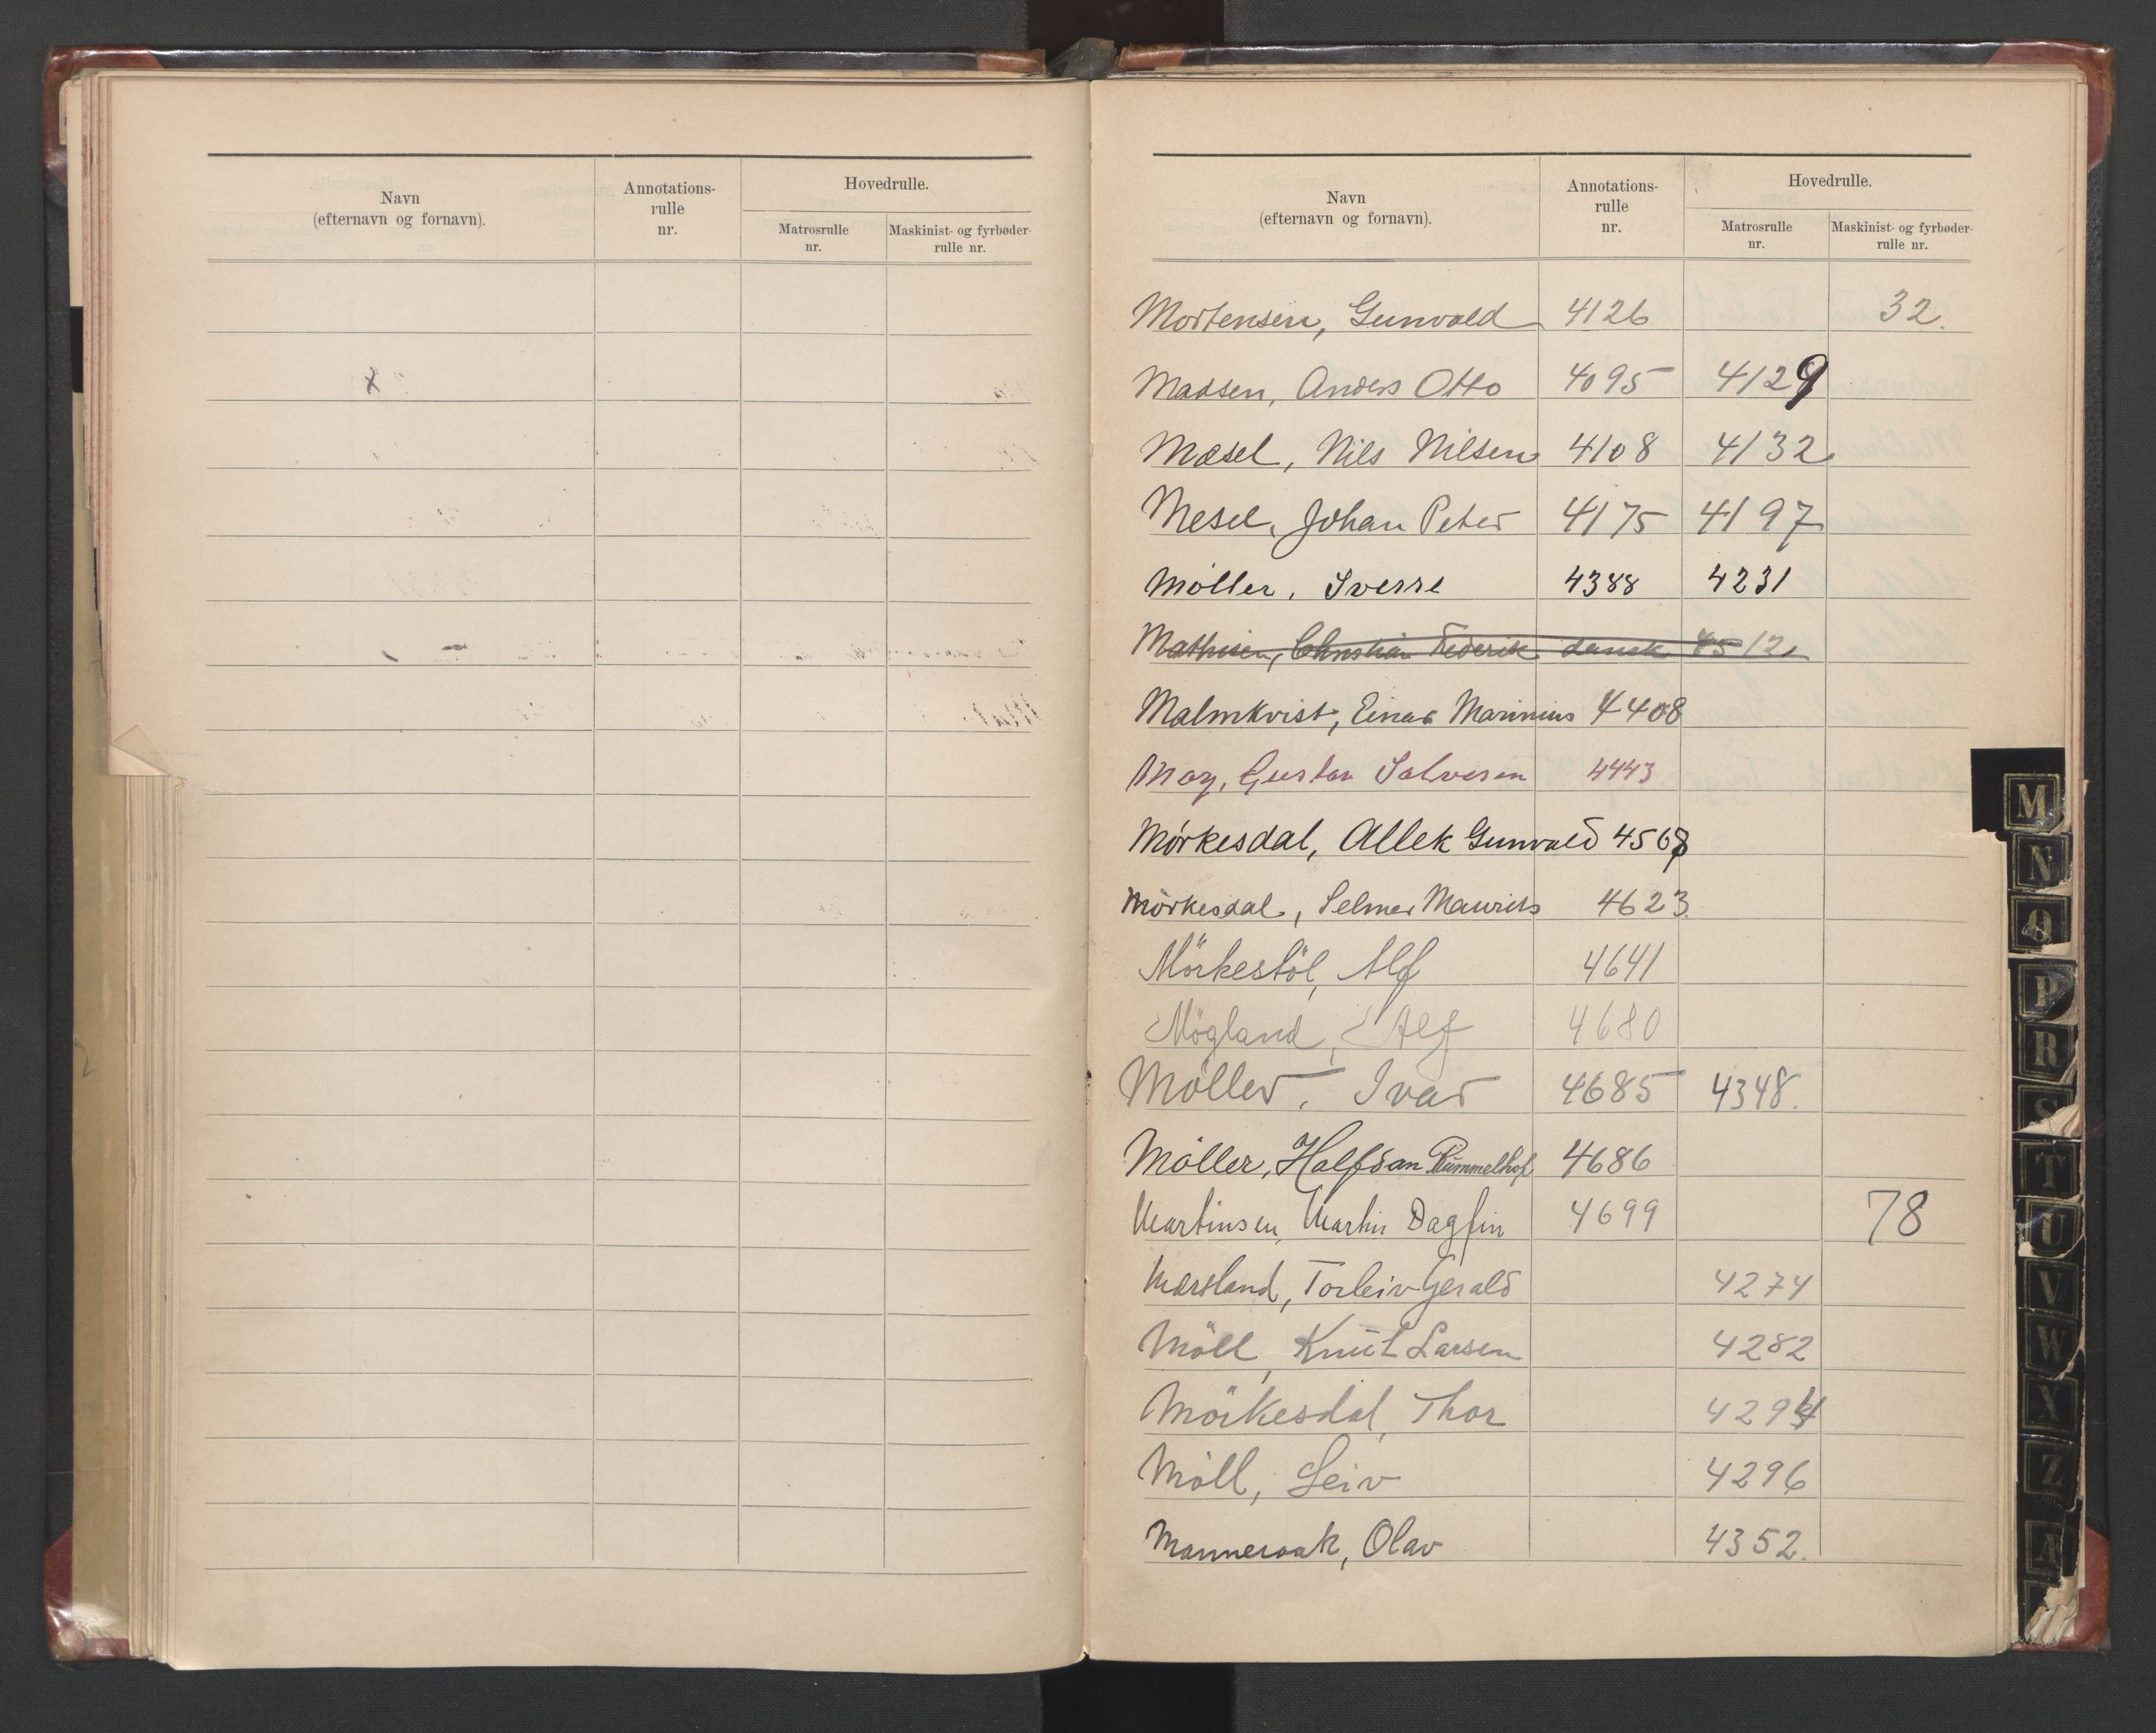 Navn
(efternavn og fornavn).
Annotations-
rulle
nr.
Hovedrulle.
Matrosrulle
nr.
Maskinist- og fyrbøder-
rulle nr.
x
Navn
(efternavn og fornavn).
Annotations-
rulle
nr.
Hovedrulle.
Matrosrulle
nr.
Maskinist- og fyrbøder-
rulle nr.
Mortensen, Gunvald 4126 32.
Madsen, Anders Otto 4095 4129
Mæsel, Nils Nilsen 4108 4132
Mesel, Johan Peter 4175 4197
Möller, Sverre 4388 4231
Mathisen, Christian Frederik dansk 4512
Malmkvist, Einar Marinius 4408
May, Gustav Salvesen 4443
Mörkesdal, Allek Gunvald 4568
Mörkesdal, Selmer Maurits 4623
Mörkestöl, Alf 4641
Mögland, Alf 4680
Möller, Ivar 4685 4348.
Möller, Halfdan Rummelhof 4686
Martinsen, Martin Dagfin 4699 78
Mærsland, Torleiv Gerald 4274
Möll, Knut Larsen 4282
Mörkesdal, Thor 4294
Möll, Leiv 4296
Manneraak, Olav 4352.
M
N
O
P
R
S
T
U
V
W
X
Z